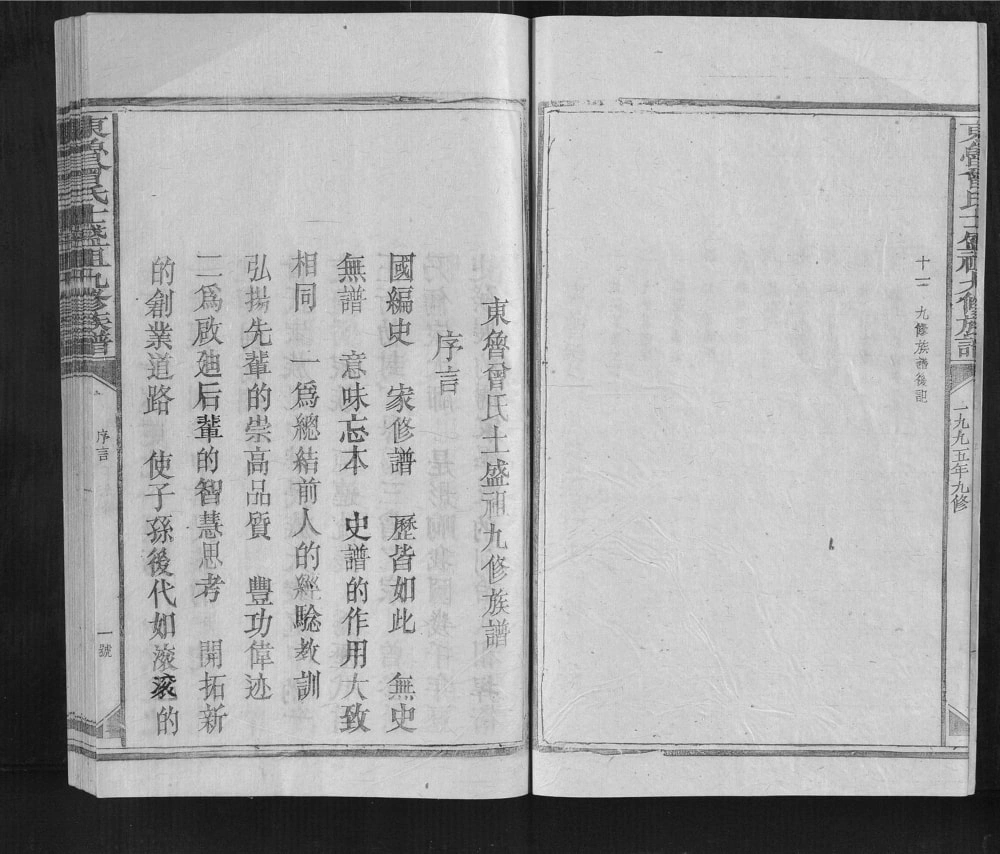 東魯曾氏士盛祖九修族譜
一九九五年九修
十二 九修族譜後記
東魯曾氏士盛祖九修族譜
序言
國編史 家修譜 歷皆如此 無史
無譜 意味忘本 史譜的作用大致
相同 一爲總結前人的經驗教訓
弘揚先輩的崇高品質 豐功偉迹
二爲啟廸后輩的智慧思考 開拓新
的創業道路 使子孫後代如滚滚的
東魯曾氏士盛祖九修族譜
序言
一號